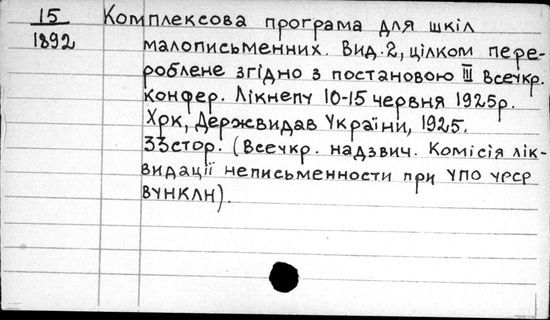 15
1892
Комплексова програма для шкіл
малописьменних. Вид.2, цілком пере-
роблене згідно з постановою III Всеукр.
конфер. Лікнепу 10-15 червня 1925р.
Хрк, Держвидав України, 1925.
33стор. (Всеукр. надзвич. Комісія лік-
видації неписьменности при УПО УРСР
ВУНКЛН).